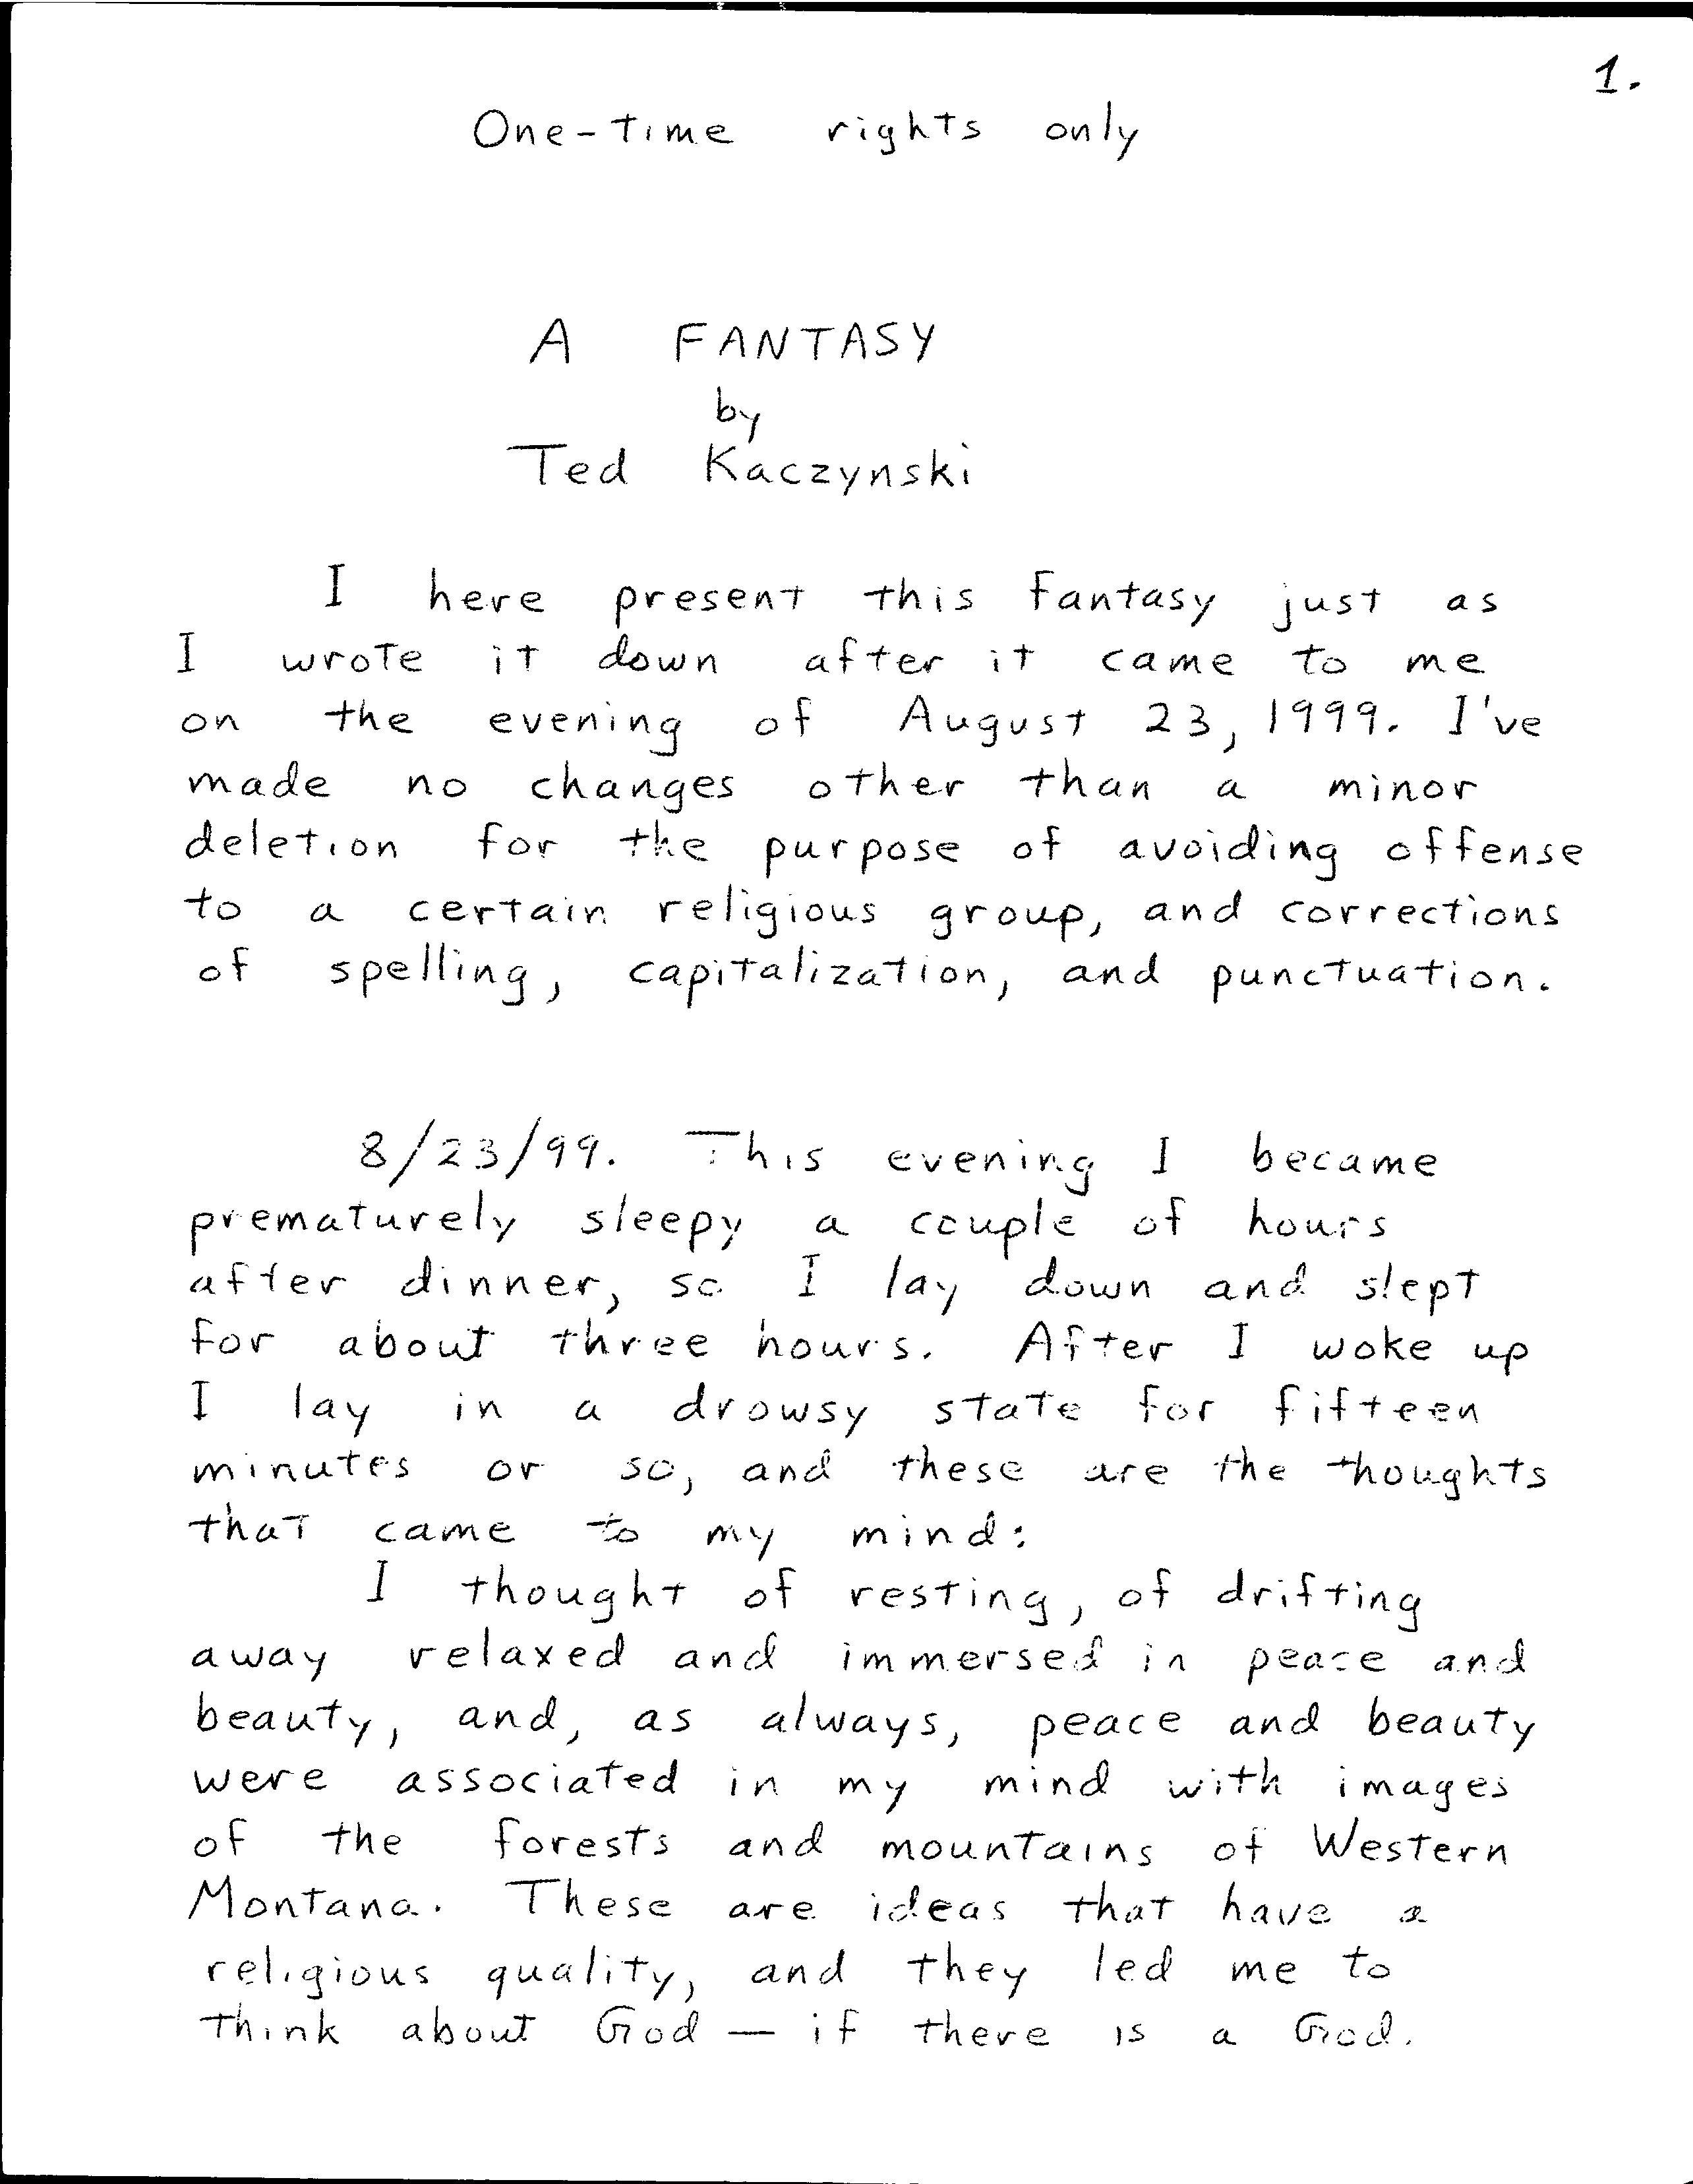 1.
One-time rights only
A FANTASY
by
Ted Kaczynski
I here present this fantasy just as
I wrote it down after it came to me
on the evening of August 23, 1999. I've
made no changes other than a minor
deletion for the purpose of avoiding offense
to a certain religious group, and corrections
of spelling, capitalization, and punctuation.
8/23/99. This evening I became
prematurely sleepy a couple of hours
after dinner, so I lay down and slept
for about three hours. After I woke up
I lay in a drowsy state for fifteen
minutes or so, and these are the thoughts
that came to my mind:
I thought of resting, of drifting
away relaxed and immersed in peace and
beauty, and, as always, peace and beauty
were associated in my mind with images
of the forests and mountains of Western
Montana. These are ideas that have a
religious quality, and they led me to
think about God — if there is a God.